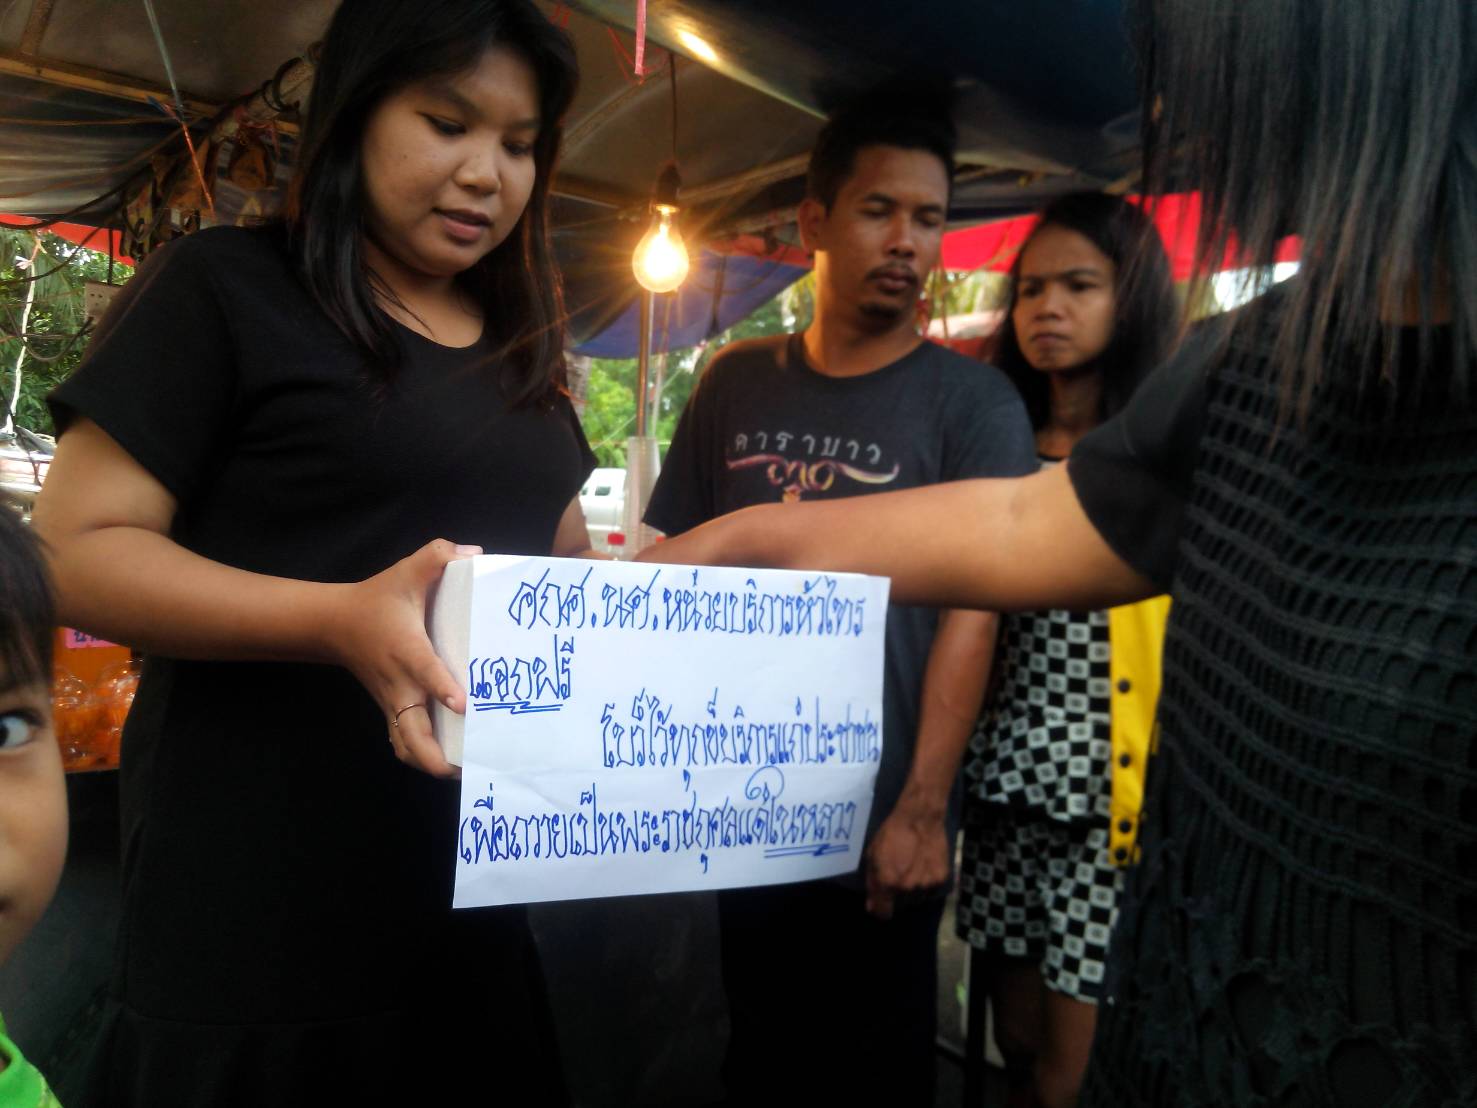 คาราบาว
ศกศ.นศ.หน่วยบริการหัวไทร
แจกฟรี
โบว์ไว้ทุกข์บริการแก่ประชาชน
เพื่อถวายเป็นพระราชกุศลแด่ในหลวง